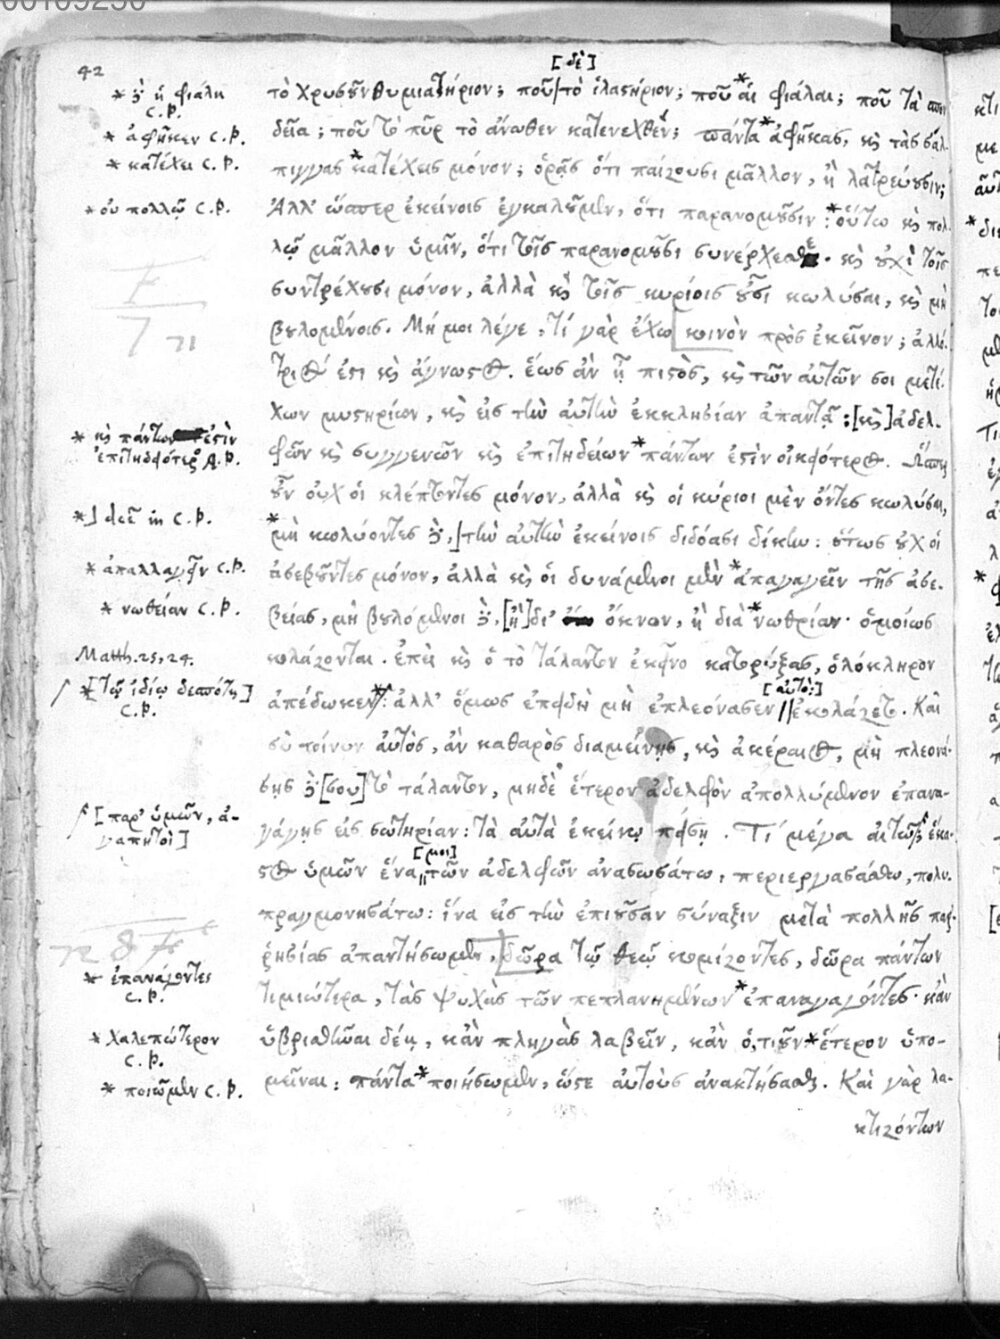 00109250
42
[δὲ]
τὸ χρυσοῦν θυμιατήριον; ποῦ τὸ ἱλαστήριον; ποῦ *αἱ φιάλαι; ποῦ τὰ σπον
δεῖα; ποῦ τὸ πῦρ τὸ ἄνωθεν κατενεχθέν; πάντα *ἀφῆκας, καὶ τὰς σάλ-
πιγγας *κατέχεις μόνον; ὁρᾷς ὅτι παίζουσι μᾶλλον, ἢ λατρεύουσιν;
Ἀλλ' ὥσπερ ἐκείνοις ἐγκαλοῦμεν, ὅτι παρανομοῦσιν: *οὕτω καὶ πολ-
λῷ μᾶλλον ὑμῖν, ὅτι τοῖς παρανομοῦσι συνέρχεσθε. καὶ οὐχὶ τοῖς
συντρέχουσι μόνον, ἀλλὰ καὶ τοῖς κυρίοις οὖσι κωλύσαι, καὶ μὴ
βουλομένοις. Μή μοι λέγε, τί γὰρ ἔχω κοινὸν πρὸς ἐκεῖνον; ἀλλό-
τριός ἐστι καὶ ἄγνωστος. ἕως ἂν ᾖ πιστὸς, καὶ τῶν αὐτῶν σοι μετέ-
χων μυστηρίων, καὶ εἰς τὴν αὐτὴν ἐκκλησίαν ἀπαντᾷ: [καὶ] ἀδελ-
φῶν καὶ συγγενῶν καὶ ἐπιτηδείων *πάντων ἐστὶν οἰκειότερος. Ὥσπερ
οὖν οὐχ οἱ κλέπτοντες μόνον, ἀλλὰ καὶ οἱ κύριοι μὲν ὄντες κωλύσαι,
*μὴ κωλύοντες δὲ, τὴν αὐτὴν ἐκείνοις διδόασι δίκην: οὕτως οὐχ οἱ
ἀσεβοῦντες μόνον, ἀλλὰ καὶ οἱ δυνάμενοι μὲν *ἀπαγαγεῖν τῆς ἀσε-
βείας, μὴ βουλόμενοι δὲ, [ἢ] δι' ὄκνον, ἢ διὰ *νωθρίαν· ὁμοίως
κολάζονται. ἐπεὶ καὶ ὁ τὸ τάλαντον ἐκεῖνο κατορύξας, ὁλόκληρον
[αὐτὸ:]
ἀπέδωκεν*: ἀλλ' ὅμως ἐπειδὴ μὴ ἐπλεόνασεν // ἐκολάζετο. Καὶ
σὺ τοίνυν αὐτὸς, ἂν καθαρὸς διαμείνῃς, καὶ ἀκέραιος, μὴ πλεονά-
σῃς δὲ [σου] τὸ τάλαντον, μηδὲ ἕτερον ἀδελφὸν ἀπολλύμενον ἐπανα-
γάγῃς εἰς σωτηρίαν: τὰ αὐτὰ ἐκείνῳ πείσῃ. Τί μέγα αἰτῶ; ἕκα-
[μοι]
στος ὑμῶν ἕνα // τῶν ἀδελφῶν ἀνασωσάτω, περιεργασάσθω, πολυ-
πραγμονησάτω: ἵνα εἰς τὴν ἐπιοῦσαν σύναξιν μετὰ πολλῆς παρ-
ρησίας ἀπαντήσωμεν, δῶρα τῷ θεῷ κομίζοντες, δῶρα πάντων
τιμιώτερα, τὰς ψυχὰς τῶν πεπλανημένων *ἐπαναγαγόντες· κἂν
ὑβρισθῆναι δέῃ, κἂν πληγὰς λαβεῖν, κἂν ὁτιοῦν *ἕτερον ὑπο-
μεῖναι: πάντα *ποιήσωμεν, ὥστε αὐτοὺς ἀνακτήσασθαι. Καὶ γὰρ λα-
κτιζόντων
* δὲ ἡ φιάλη
C.P.
* ἀφῆκεν C.P.
* κατέχει C.P.
* οὐ πολλῷ C.P.
* καὶ πάντων ἐστὶν
ἐπιτηδειότερος A.P.
* ] deest in C.P.
* ἀπαλλαγῆν C.P.
* νωθείαν C.P.
Matth. 25, 24.
* [τῷ ἰδίῳ δεσπότῃ]
C.P.
[παρ' ὑμῶν, ἀ-
γαπητοὶ]
* ἐπανάγοντες
C.P.
* χαλεπώτερον
C.P.
* ποιῶμεν C.P.